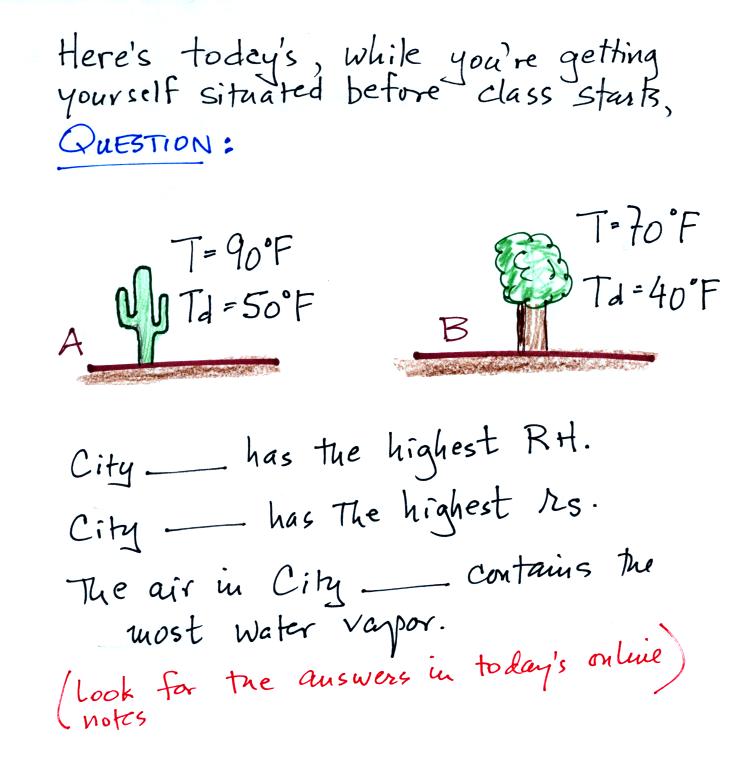 Here's today's, while you're getting
yourself situated before class starts,
QUESTION:
T=90°F
Td=50°F
A
T=70°F
Td=40°F
B
City ___ has the highest RH.
City ___ has The highest rs.
The air in City ___ contains the
most water vapor.
(Look for the answers in today's online
notes)